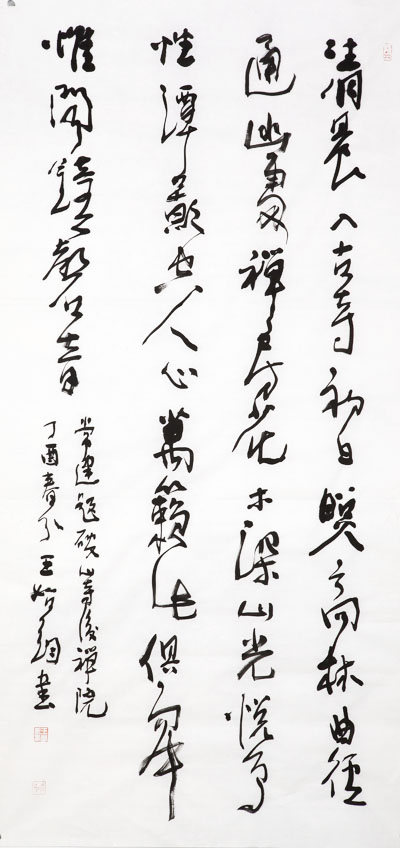 清晨入古寺初日照高林曲徑
通幽處禪房花木深山光悅鳥
性潭影空人心萬籟此俱寂
惟聞鐘磬音
常建題破山寺後禪院
丁酉春 王 書